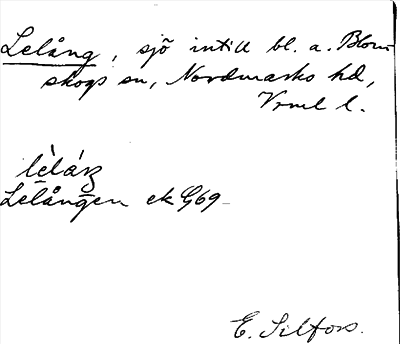 Lelång, sjö intill bl. a. Blom-
skogs sn, Nordmarks hd,
Vrml l.
lèláŋ
Lelången ek G69
E. Silfors.